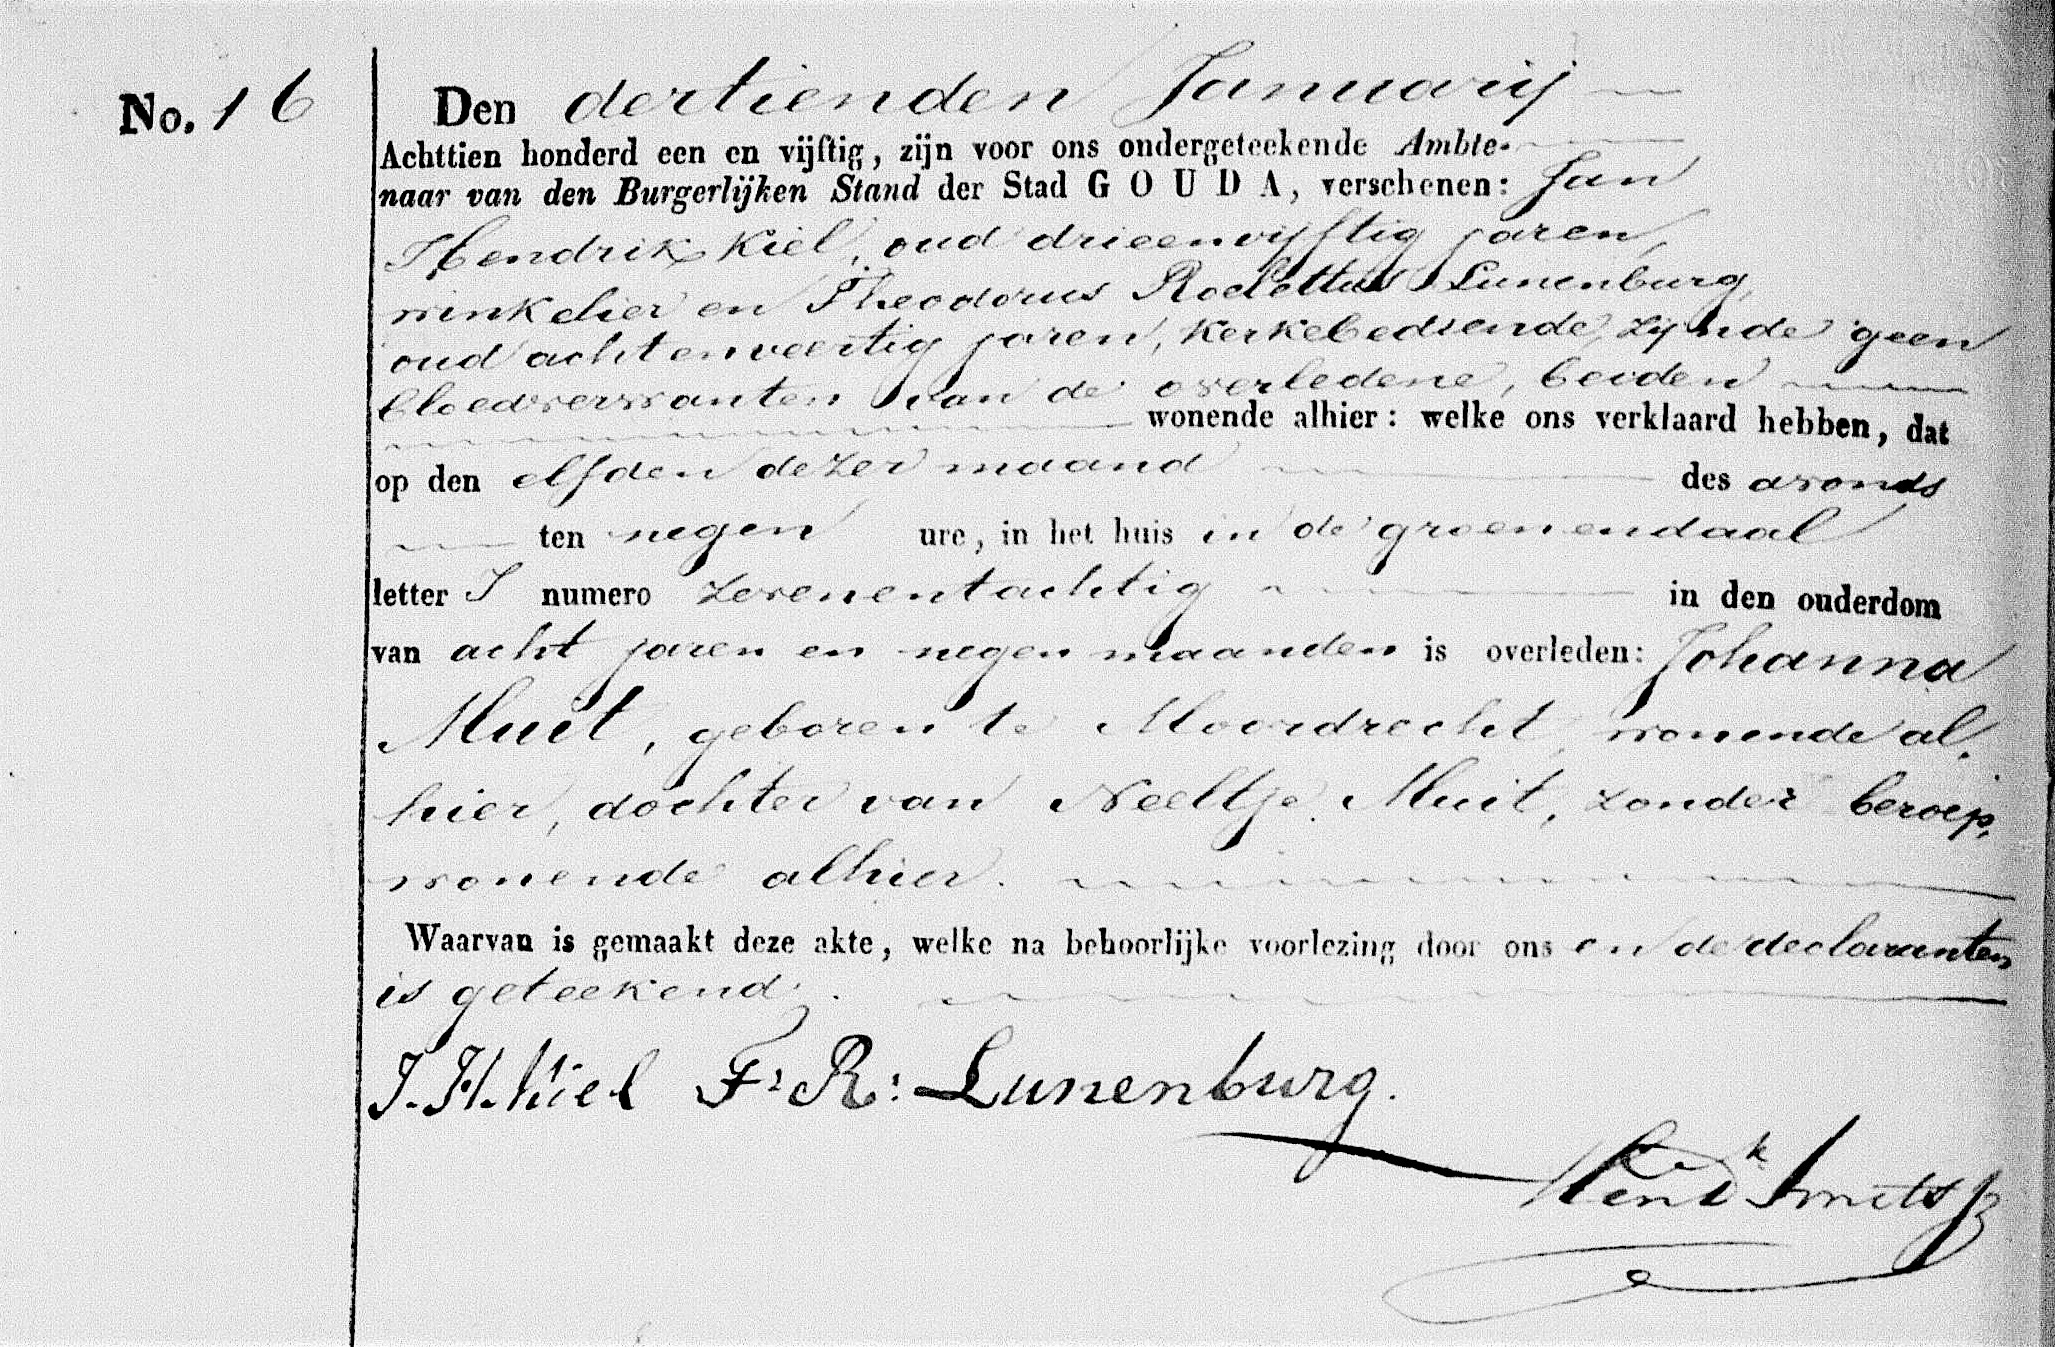 No. 16
Den dertienden Januarij
Achttien honderd een en vijftig, zijn voor ons ondergeteekende Ambte-
naar van den Burgerlijken Stand der Stad GOUDA, verschenen: Jan
Hendrik Kiel, oud drieenvijftig jaren,
winkelier en Theodorus Roelettus Lunenburg,
oud achtenveertig jaren, kerkebediende, zijnde geen
bloedverwanten van de overledene, beiden
wonende alhier: welke ons verklaard hebben, dat
op den elfden dezer maand des avonds
ten negen ure, in het huis in de groenendaal
letter I numero zevenentachtig in den ouderdom
van acht jaren en negen maanden is overleden: Johanna
Muit, geboren te Moordrecht, wonende al-
hier, dochter van Neeltje Muit, zonder beroep,
wonende alhier.
Waarvan is gemaakt deze akte, welke na behoorlijke voorlezing door ons en de declaranten
is geteekend.
J. H. Kiel F: R: Lunenburg.
Hendk Smits